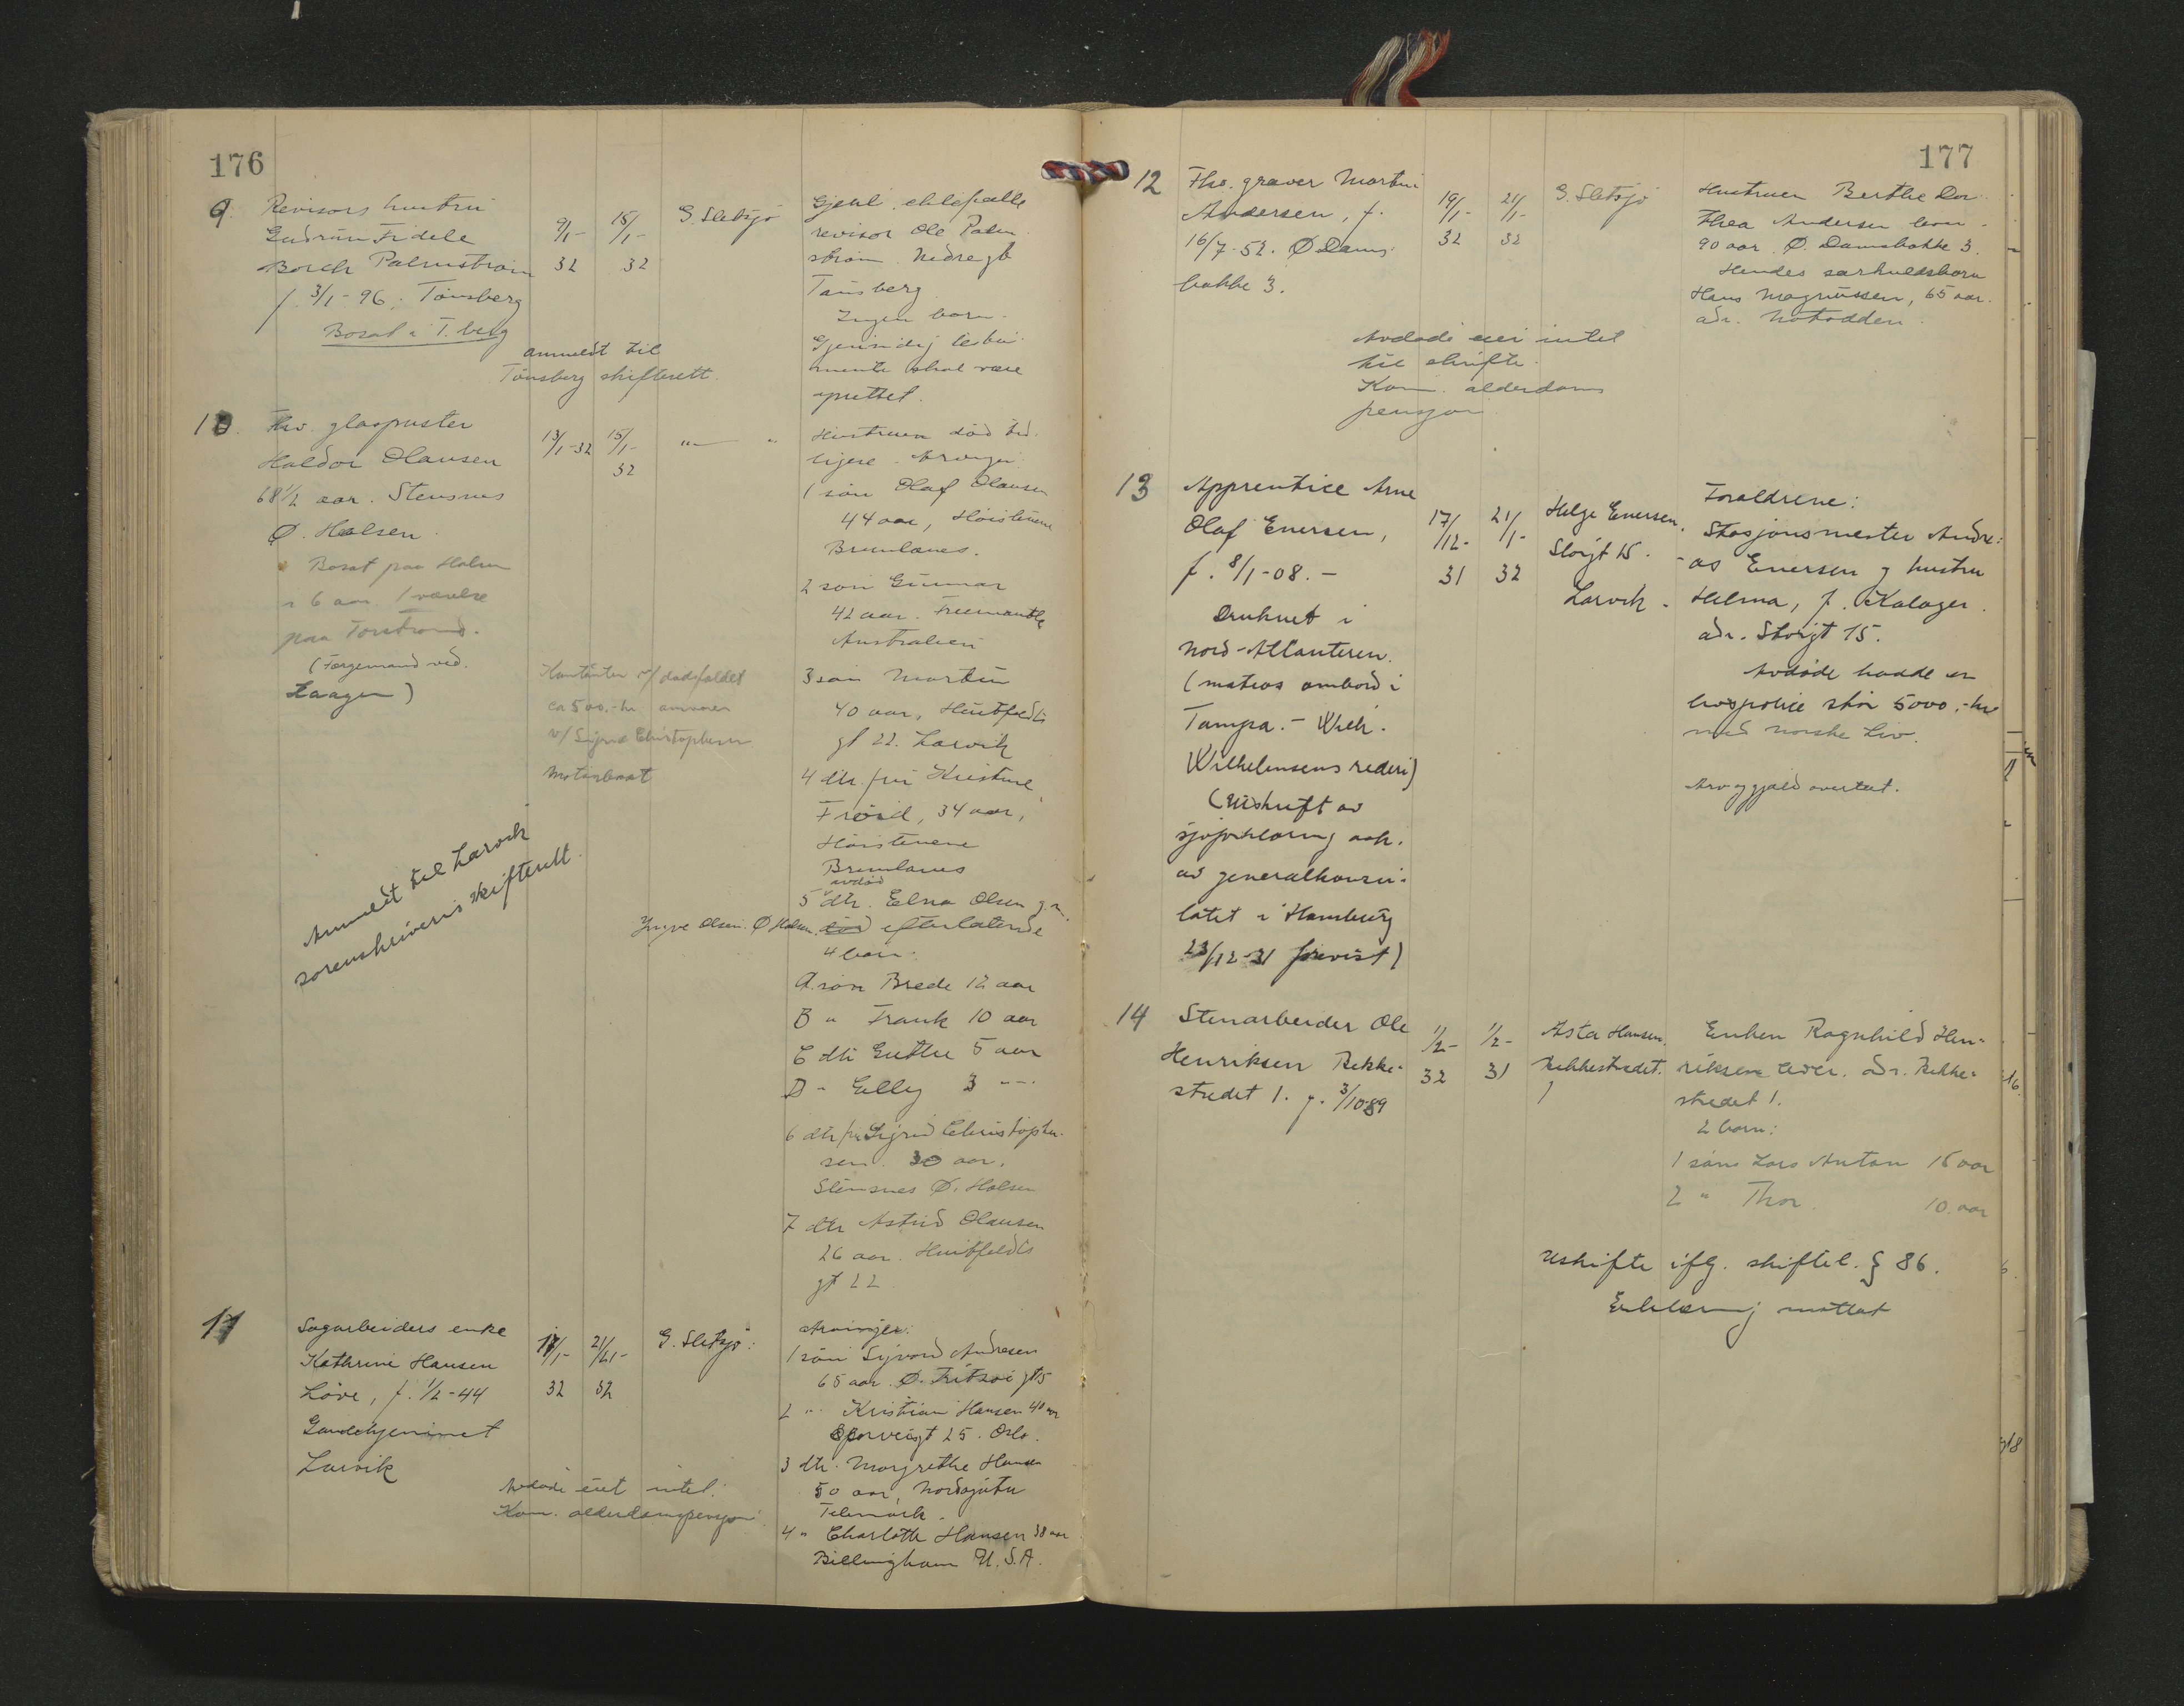 176
9. Revisors hustru
Gudrun Fidele
Borch Palmstrøm
f. 3/1-96. Tønsberg
Bosat i T.berg
9/1-
32
15/1-
32
G. Sletsjø
Gjenl. ektefælle
revisor Ole Palm
strøm Nedregt
Tønsberg
Ingen barn.
Gjensidig testa
mente skal være
oprettet.
anmeldt til
Tønsberg skifterett.
10. Fhv. glaspuster
Haldor Olausen
68 1/2 aar. Stensnes
Ø. Halsen
Bosat paa Halsen
i 6 aar. 1 værelse
paa Torstrand.
(Færgemand ved
Laagen)
13/1-32
15/1-
32
"— "
Hustruen død tid
ligere. Arvinger:
1 søn Olaf Olausen
44 aar, Høistenene
Brunlanes.
2 søn Gunnar
42 aar. Freemantle
Australien
3 søn Martin
40 aar, Huitfeldts
gt 22. Larvik
4 dtr. fru Kristine
Frøid, 34 aar,
Høistenene
Brunlanes
avdød
5 dtr. Elna Olsen g.m.
Yngve Olsen. Ø Halsen. død efterlatende
4 barn:
A. søn Brede 12 aar
B " Frank 10 aar
C dtr Guthe 5 aar
D - Gelly 3 "-
6 dtr fru Sigrid Christopher
sen. 30 aar.
Stensnes Ø. Halsen
7 dtr Astrid Olausen
26 aar. Huitfeldts
gt 22
Kontanter v/ dødsfaldet
ca 500.- kr.
v/ Sigrid Christophersen
Motorbaat
Anmeldt til Larvik
sorenskriveris skifterett.
11 Sagarbeiders enke
Kathrine Hansen
Løve, f. 1/2-44
Gamlehjemmet
Larvik
17/1-
32
21/1-
32
G. Sletsjø:
Arvinger:
1 søn Sigvard Andresen
65 aar. Ø. Fritzøe gt 5
2 " Kristian Hansen 40 aar
Sporveisgt 25. Oslo.
3 dtr. Margrethe Hansen
50 aar,
Telemark.
4 " Charlotte Hansen 38 aar
Billingham U.S.A.
Avdøde eiet intet.
Kom. alderdomspensjon.
177
12 Fhv. graver Martin
Andersen, f.
16/7-52. Ø Dams
bakke 3.
19/1-
32
21/1-
32
G. Sletsjø
Hustruen Berthe Do
thea Andersen
90 aar. Ø. Damsbakke 3.
Hendes særkuldsbarn
Hans Magnussen, 65 aar.
adr. Notodden.
Avdøde eier intet
til skifte.
Kom. alderdoms
pensjon
13 Apprentice Arne
Olaf Enersen,
f. 8/1-08.-
Druknet i
Nord-Atlanteren.
(matros ombord i
Tampa.- Wilh.
Wilhelmsens rederi)
(Utskrift av
sjøforklaring avh.
av generalkonsu-
latet i Hamburg
23/12-31 forevist)
17/12-
31
21/1-
32
Helge Enersen.
Storgt 15.
Larvik.
Forældrene:
Stasjonsmester Andre-
as Enersen og hustru
Helma, f. Kalager.
adr. Storgt 15.
Avdøde hadde en
livspolice stor 5000.- kr
med Norske Liv.
Arv og gjæld overtat.
14 Stenarbeider Ole
Henriksen Bekke-
stredet 1. f. 3/10-89
1/2-
32
1/2-
31
Asta Hansen.
Bekkestredet.
1
Enken Ragnhild Hen-
riksen lever. adr. Bekke-
stredet 1.
2 barn:
1 søn Lars Anton 15 aar
2 " Thor 10 aar
Uskifte iflg. skiftel. § 86.
Erklæring mottat